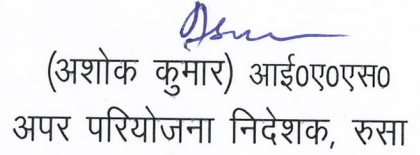 (अशोक कुमार) आई०ए०एस०
अपर परियोजना निदेशक, रुसा